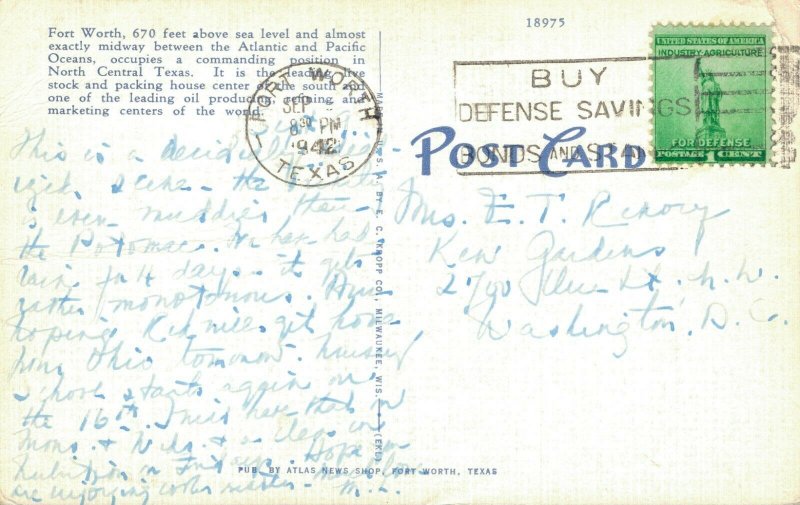 Fort Worth, 670 feet above sea level and almost
exactly midway between the Atlantic and Pacific
Oceans, occupies a commanding position in
North Central Texas. It is the leading live
stock and packing house center of the south and
one of the leading oil producing, refining and
marketing centers of the world.
18975
UNITED STATES OF AMERICA
INDUSTRY-AGRICULTURE
FOR DEFENSE
POSTAGE 1 CENT
FORT WORTH
SEP
8 30 PM
1942
TEXAS
BUY
DEFENSE SAVINGS
BONDS AND STAMPS
POST CARD
This is a decidedly
scene - the
is even muddier than
the Potomac. We have had
rain for 4 days - it gets
rather monotonous. Am
hoping will get home
from Ohio tomorrow. Nursing
school starts again on
the 16th. I will have that on
Mons. & Weds. & a class in
Nutrition on Fridays. Hope you
are enjoying cooler weather
Mrs. E. T.
Kew Gardens
N.W.
Washington, D.C.
MADE IN U. S. A. BY E. C. KROPP CO., MILWAUKEE, WIS.
PUB. BY ATLAS NEWS SHOP, FORT WORTH, TEXAS